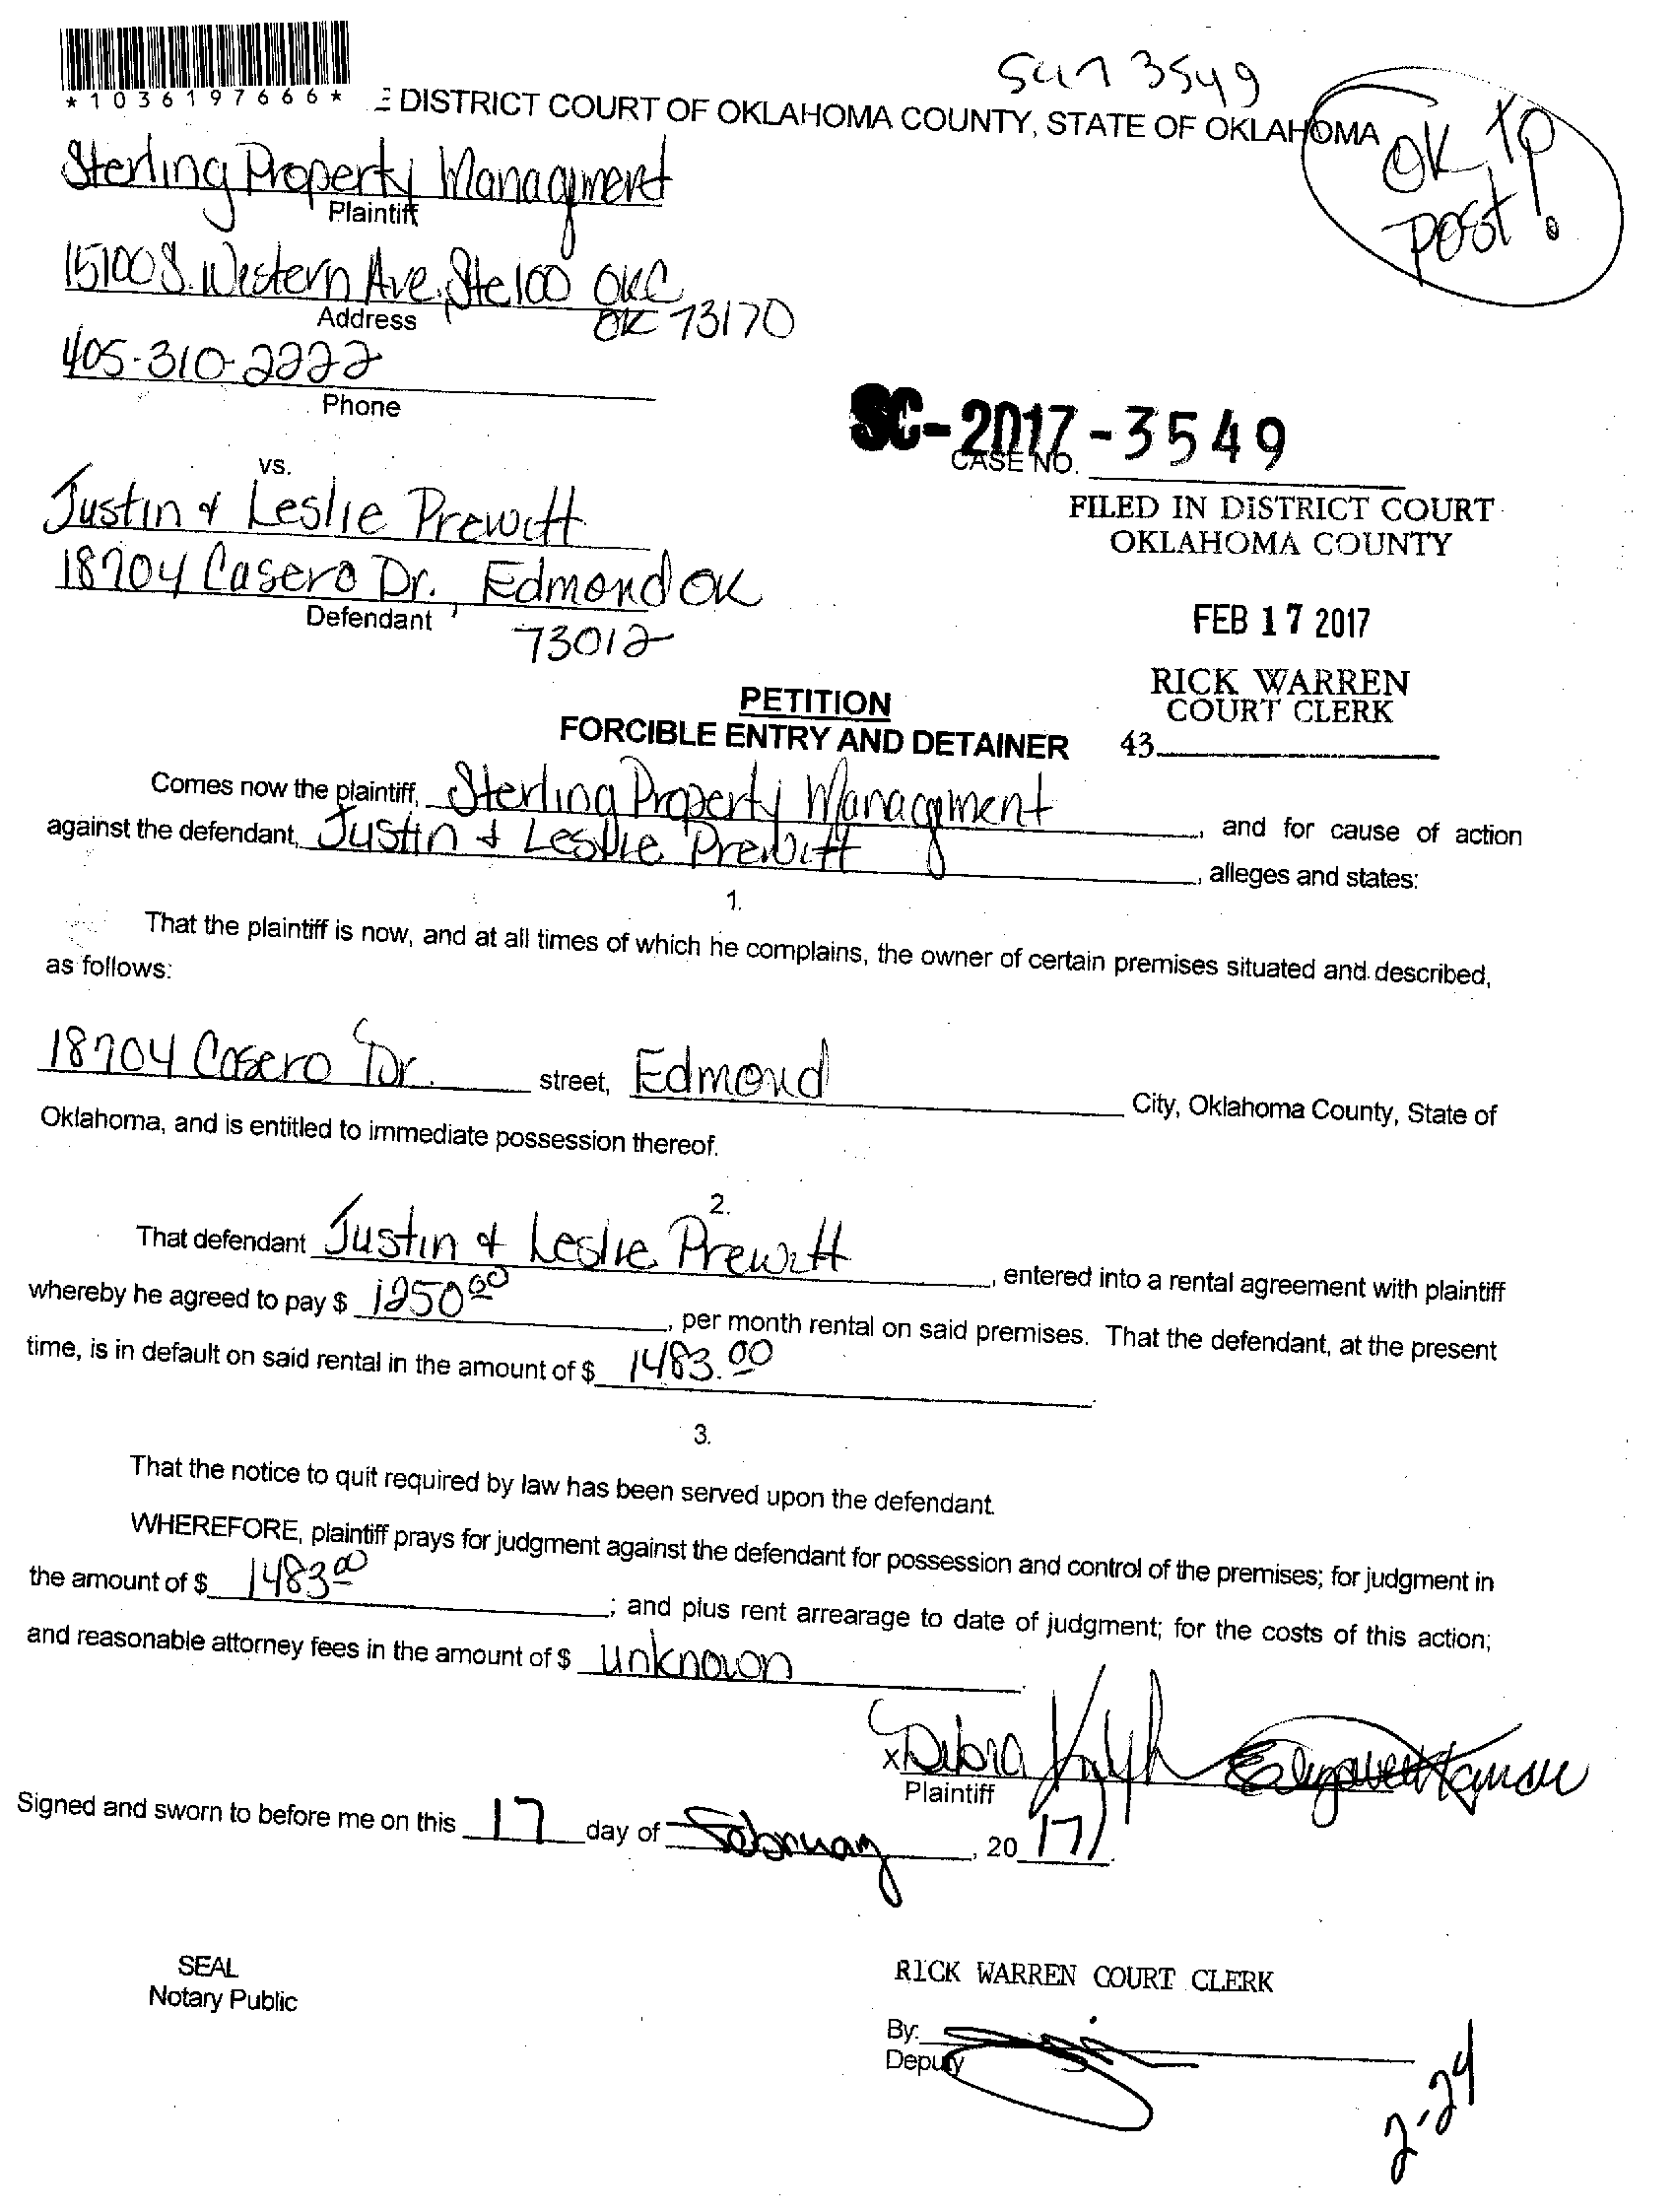 SC17 3549
*1036197666*
E DISTRICT COURT OF OKLAHOMA COUNTY, STATE OF OKLAHOMA
OK to
post!
Sterling Property Managment
Plaintiff
15100 S. Western Ave. Ste 100 OKC
Address
OK 73170
405-310-2222
Phone
SC-2017-3549
CASE NO.
vs.
FILED IN DISTRICT COURT
OKLAHOMA COUNTY
Justin & Leslie Prewitt
18704 Casero Dr., Edmond OK
Defendant
73012
FEB 17 2017
RICK WARREN
COURT CLERK
43
PETITION
FORCIBLE ENTRY AND DETAINER
Comes now the plaintiff, Sterling Property Managment, and for cause of action
against the defendant, Justin & Leslie Prewitt, alleges and states:
1.
That the plaintiff is now, and at all times of which he complains, the owner of certain premises situated and described,
as follows:
18704 Casero Dr. street, Edmond City, Oklahoma County, State of
Oklahoma, and is entitled to immediate possession thereof.
2.
That defendant Justin & Leslie Prewitt, entered into a rental agreement with plaintiff
whereby he agreed to pay $ 1250 00, per month rental on said premises. That the defendant, at the present
time, is in default on said rental in the amount of $ 1483.00.
3.
That the notice to quit required by law has been served upon the defendant.
WHEREFORE, plaintiff prays for judgment against the defendant for possession and control of the premises; for judgment in
the amount of $ 1483 00; and plus rent arrearage to date of judgment; for the costs of this action;
and reasonable attorney fees in the amount of $ unknown.
x Debra
Plaintiff
Signed and sworn to before me on this 17 day of February, 20 17.
SEAL
Notary Public
RICK WARREN COURT CLERK
By:
Deputy
2-24